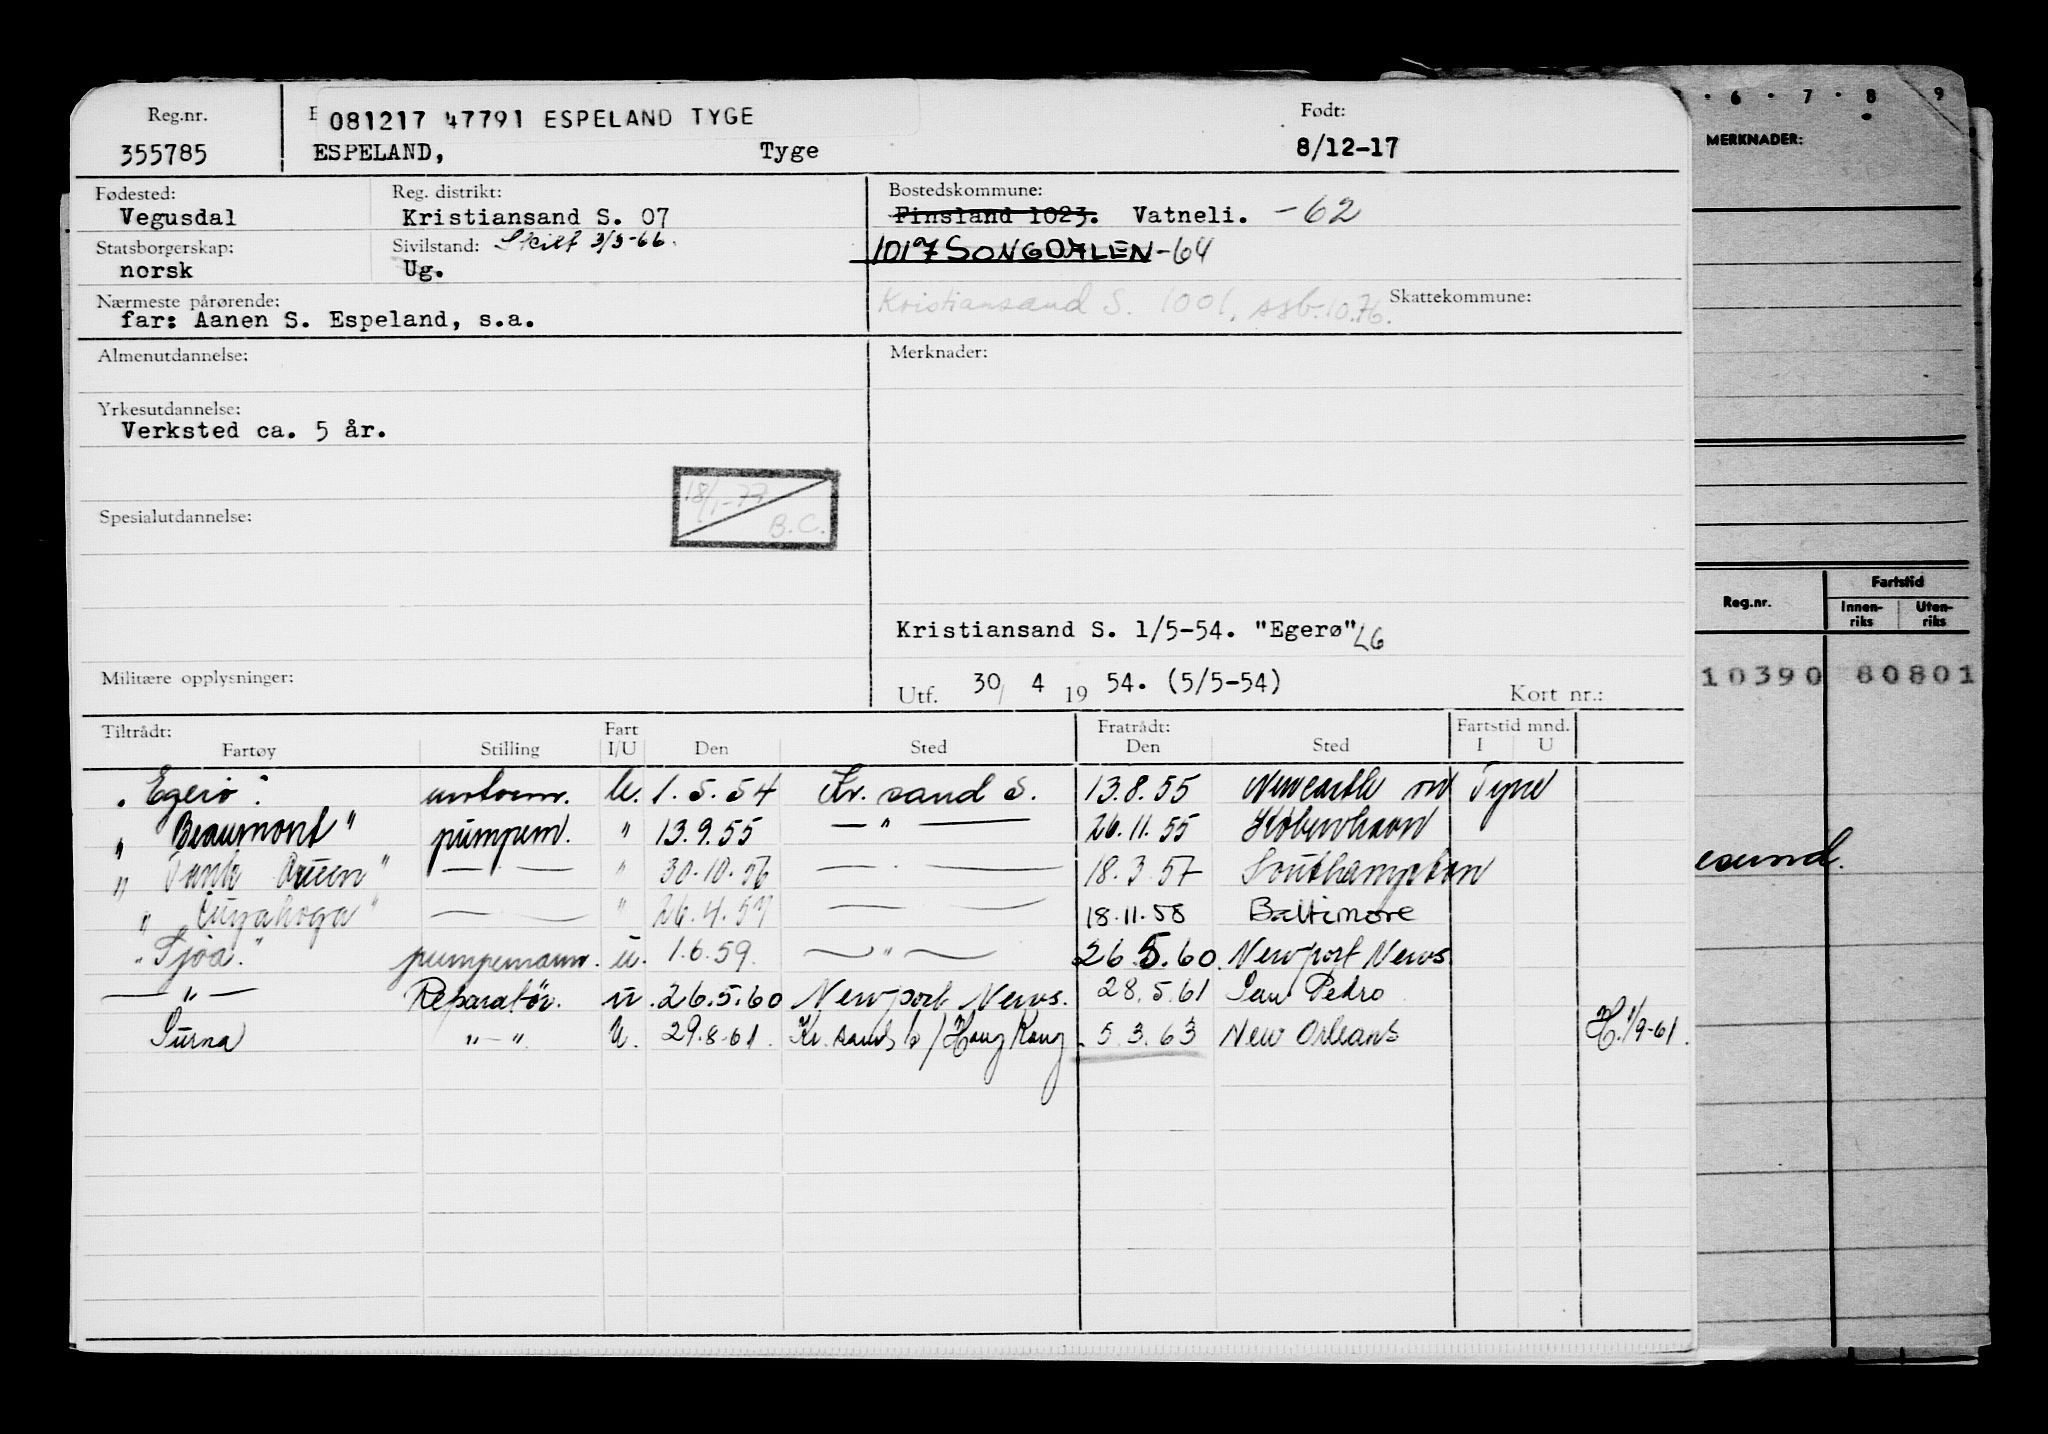 Reg.nr. 081217 47791 ESPELAND TYGE Født:
355785 ESPELAND, Tyge 8/12-17
Fødested: Reg. distrikt: Bostedskommune:
Vegusdal Kristiansand S. 07 Finsland 1023. Vatneli. -62
Statsborgerskap: Sivilstand: Skilt 3/3-66. 1017 SONGDALEN-64
norsk Ug.
Nærmeste pårørende: Kristiansand S. 1001. 10.76. Skattekommune:
far: Aanen S. Espeland, s.a.
Almenutdannelse: Merknader:
Yrkesutdannelse:
Verksted ca. 5 år.
18/1-77
B.C.
Spesialutdannelse:
Kristiansand S. 1/5-54. "Egerø" LG
Militære opplysninger:
Utf. 30/ 4 19 54. (5/5-54) Kort nr.:
Tiltrådt: Fart Fratrådt: Fartstid mnd.
Fartøy Stilling I/U Den Sted Den Sted I U
"Egerø" U. 1.5.54 Kr.sand S. 13.8.55 Newcastle on Tyne
" Beaumont" pumpem. " 13.9.55 — " — 26.11.55 København
" Tank Queen" — — " 30.10.56 — — 18.3.57 Southampton
" Cuyahoga" — — " 26.4.57 — — 18.11.58 Baltimore
"Tjoa." pumpemann. u. 1.6.59. — " — 26.5.60. Newport News.
— " — Reparatör. u. 26.5.60 Newport News. 28.5.61 San Pedro
Surna " — " U. 29.8.61. Kr.sand S/Hong Kong. 5.3.63 New Orleans H. 1/9-61.
6 . 7 . 8 9
MERKNADER:
Reg.nr. Fartstid
Innen-riks Uten-riks
10390 80801
esund.